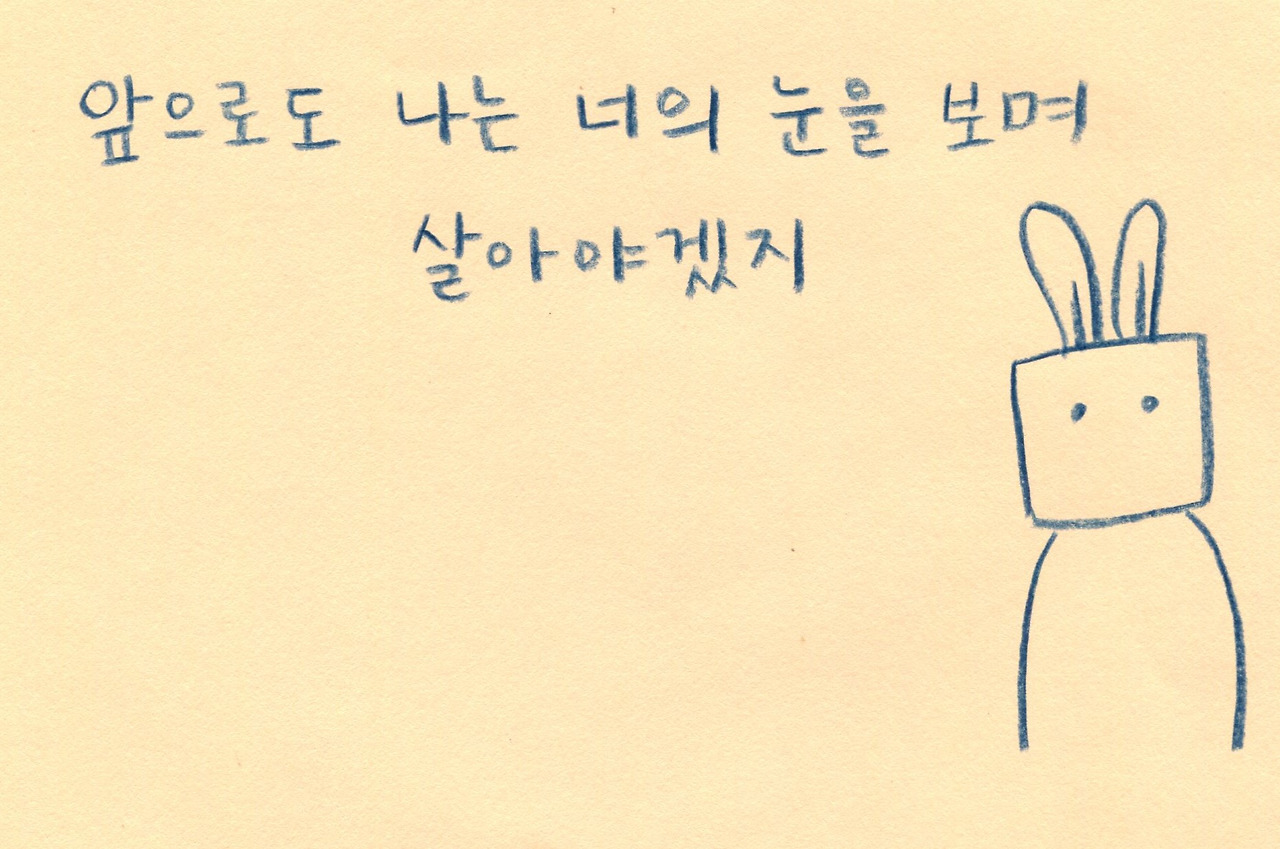 앞으로도 나는 너의 눈을 보며
살아야겠지